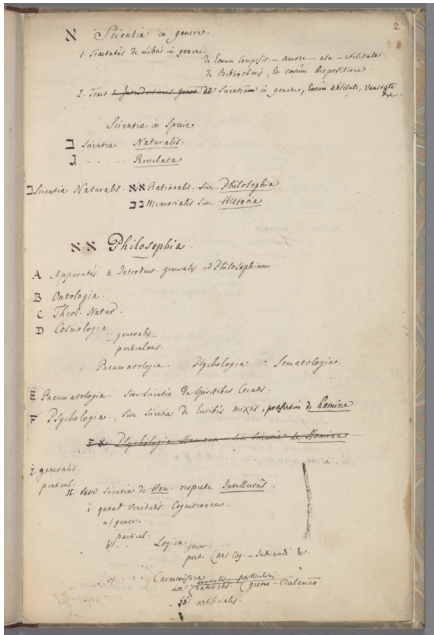 2
א Scientia in genere.
1. Tractatus de Libris in genere
de Eorum compos. – amore – usu – utilitate.
de Bibliothecis, et earum Dispositione.
2. Tract Scientiam in genere, Earum utilitate,
Scientia in Specie
ב Scientia Naturalis
ג . . . . . Revelata
ב Scientia Naturalis אא Rationalis. Sive Philosophia
בב Memorialis Sive Historia
אא Philosophia.
A Apparatus a Introduct. generalis ad Philosophiam.
B Ontologia.
C Theol. Natur.
D Cosmologia generalis.
particularis.
Pneumatologia Psychologia – Somatologia.
E Pneumatologia. Sive Scientia de Spiritibus Creatis.
F Psychologia. Sive Scientia de Entibus mixtis, de Homine
Psychologia Humana Sive Scientia de Homine
I generalis.
particul.
II Scientia de Hom. respectu Intellectus.
i quoad Veritatis Cognitionem.
a) gener.
particul.
Logica gener.
part (ars Cog. – Judicandi &c.
generalis particularis
naturalis
artificialis